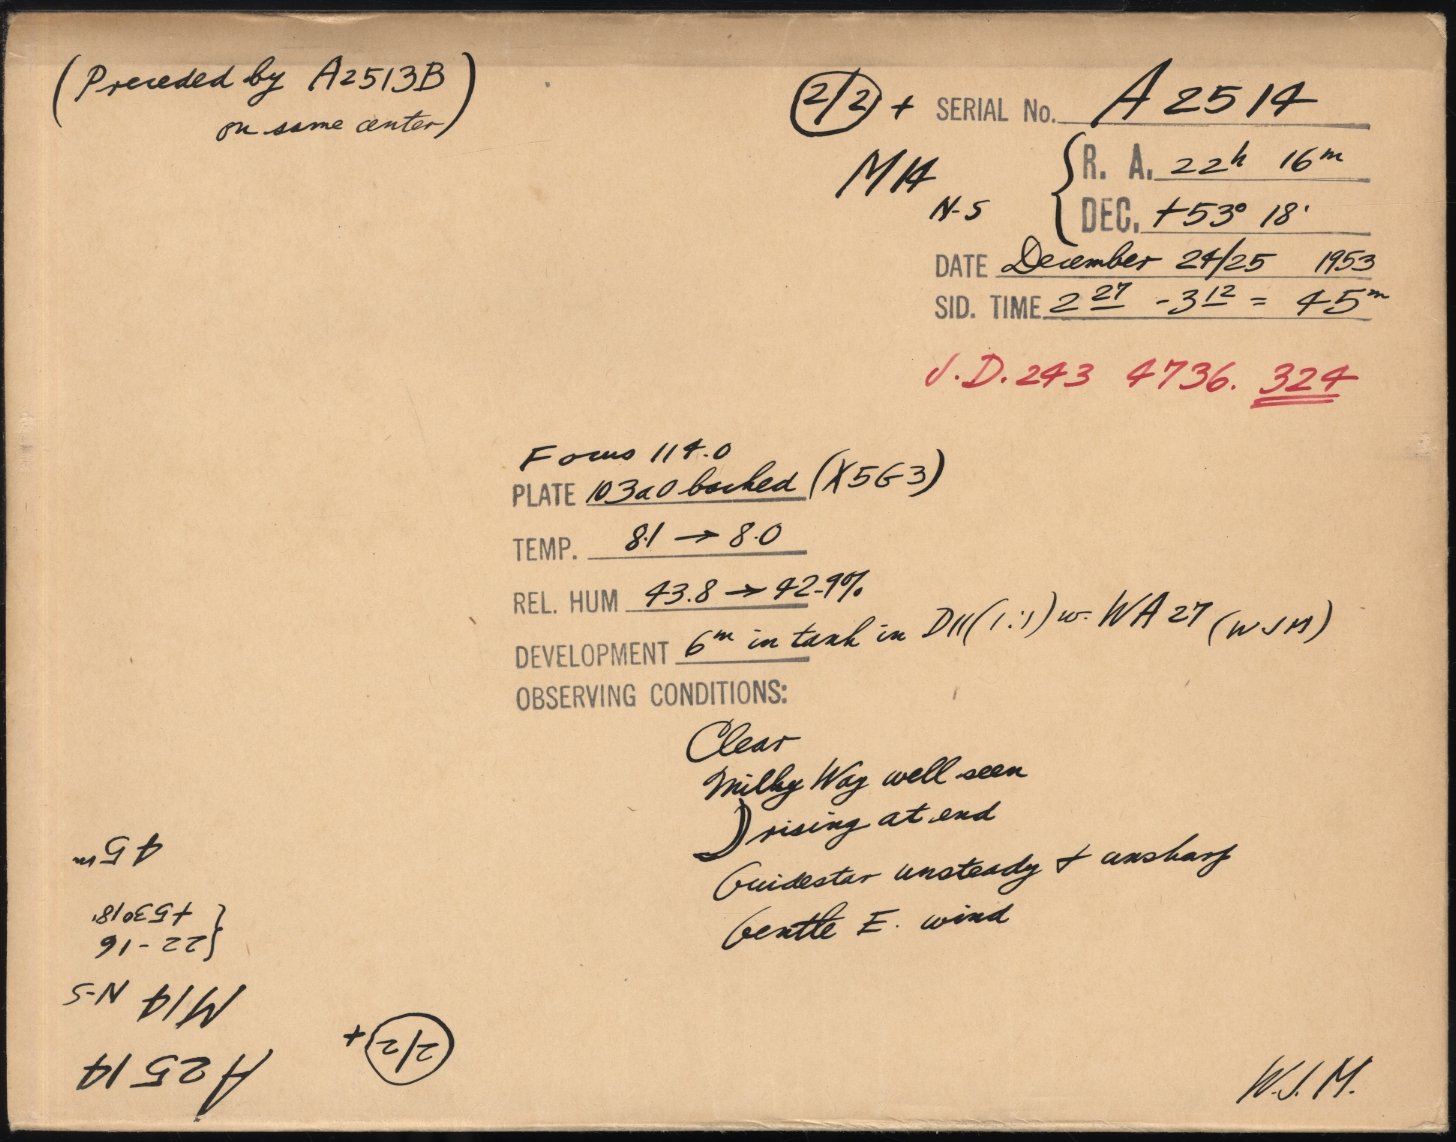 (Preceded by A2513B
on same center)
(2/2) + SERIAL No. A2514
M14
N-S
{R. A. 22h 16m
DEC. +53° 18'
DATE December 24/25 1953
SID. TIME 2 27 - 3 12 = 45m
J.D. 243 4736.324
Focus 114.0
PLATE 103aO backed (X5G3)
TEMP. 8.1 → 8.0
REL. HUM 43.8 → 42.9%
DEVELOPMENT 6m in tank in D11(1:1) w. WA27 (WJM)
OBSERVING CONDITIONS:
Clear
Milky Way well seen
☽ rising at end
Guidestar unsteady + unsharp
Gentle E. wind
W.J.M.
(2/2) +
A2514
M14 N-S
{22-16
+53°18'
45m